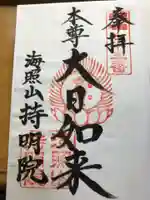 奉拝
本尊
大日如来
海照山
持明院